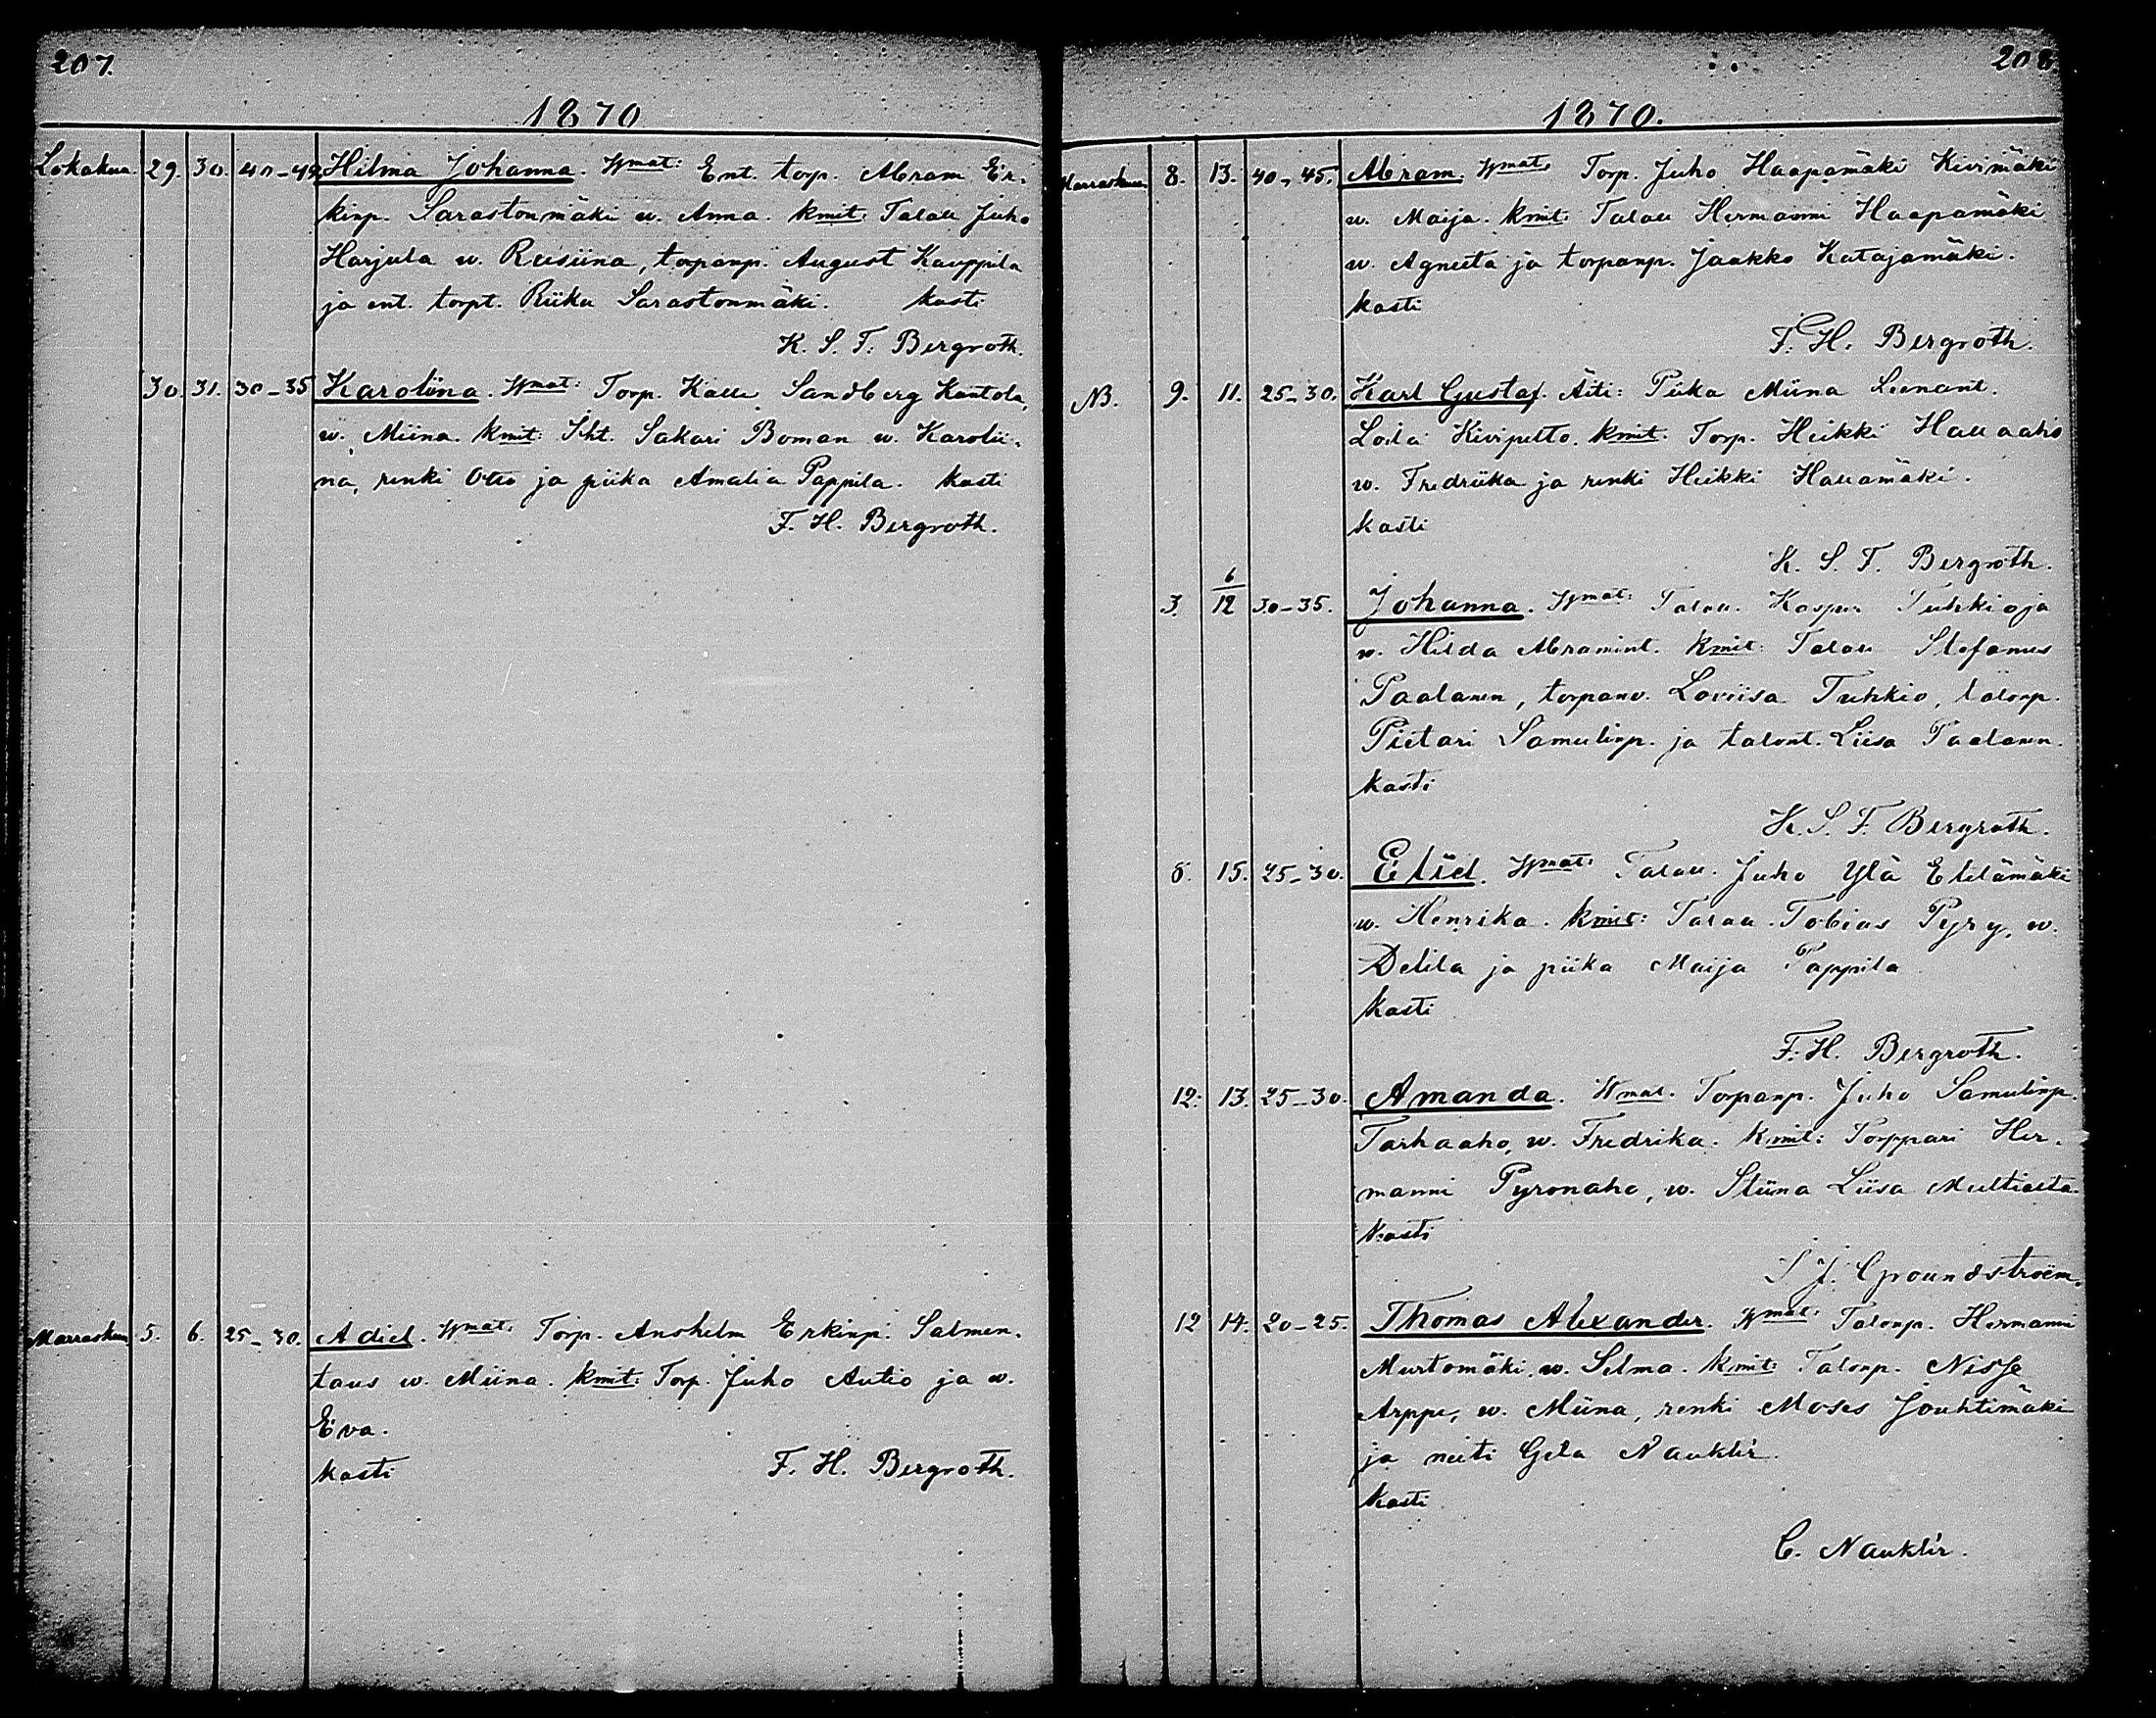 207.
1870
Lokakuu. 29. 30. 40-42 Hilma Johanna. Wmat: Ent. torp. Abram Er-
kinp. Sarastonmäki w. Anna. kmit: Talall Juho
Harjula w. Reisiina, torpanp. August Kauppila
ja ent. torpt. Riika Sarastonmäki. kasti
K. S. F. Bergroth.
30. 31. 30-35 Karoliina. Wmat: Torp. Kalle Sandberg Kantola,
w. Miina. kmit: Iht. Sakari Boman w. Karolii-
na, renki Otto ja piika Amalia Pappila. kasti
F. H. Bergroth.
Marraskuu. 5. 6. 25-30. Adiel. Wmat: Torp. Anshelm Erkinp. Salmen-
taus w. Miina. kmit: Torp. Juho Autio ja w.
Eva.
kasti F. H. Bergroth.
208
1870.
Marraskuu. 8. 13. 40-45. Abram. Wmat: Torp. Juho Haapamäki Kivimäki
w. Maija. kmit: Talall Hermanni Haapamäki
w. Agneeta ja torpanp. Jaakko Katajamäki.
kasti
F. H. Bergroth.
NB. 9. 11. 25-30. Karl Gustaf. Äiti: Piika Miina Leenant.
Kivipelto. kmit: Torp. Heikki Hallaaho
w. Fredriika ja renki Heikki Hallamäki.
kasti
K. S. F. Bergroth.
3. 6/12 30-35. Johanna. Wmat: Talall. Kasper Tuhkioja
w. Hilda Abramint. kmit: Talall Stefanus
Paalanen, torpanv. Loviisa Tuhkio, talonp.
Pietari Samulinp. ja talont. Liisa Paalanen.
kasti
K. S. F. Bergroth.
6. 15. 25-30. Eliel. Wmat: Talall. Juho Ylä Etelämäki
w. Henrika. kmit: Talall. Tobias Pyry, w.
Delila ja piika Maija Pappila
kasti
F. H. Bergroth.
12. 13. 25-30. Amanda. Wmat. Torpanp. Juho Samulinp.
Tarhaaho, w. Fredrika. kmit: Torppari Her-
manni Pyronaho, w. Stiina Liisa Multiaita.
kasti
J. Groundstroëm.
12 14. 20-25. Thomas Alexander. Wmat: Talonp. Hermanni
Murtomäki, w. Selma. kmit: Talonp. Nisse
Arppe, w. Miina, renki Moses Jouhtimäki
ja neiti Gela Nauklér.
kasti
C. Nauklér.